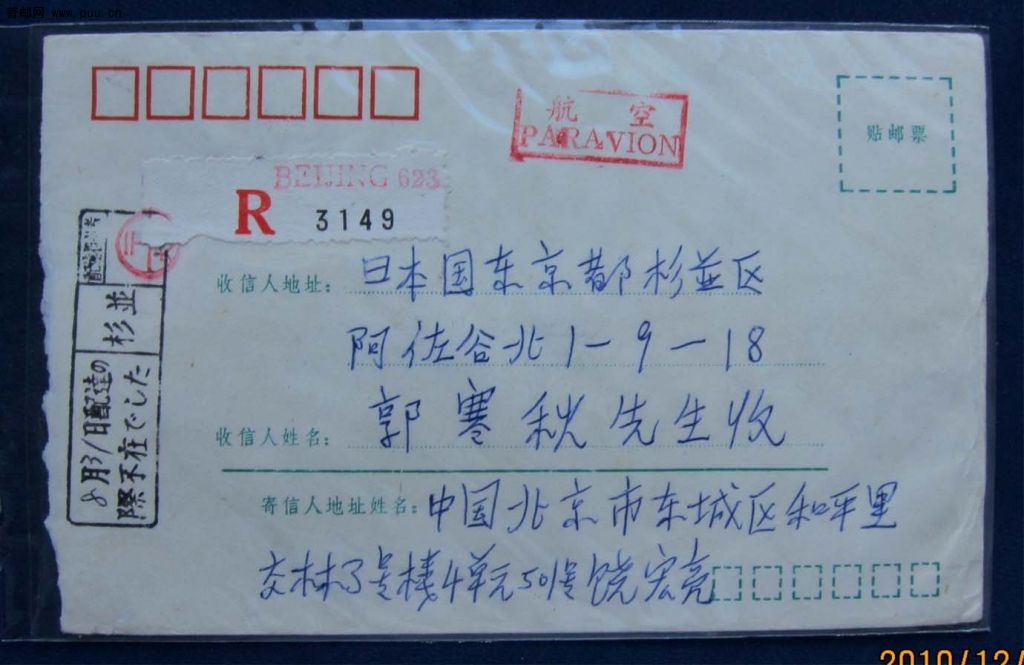 www.puu.cn
航 空
PARAVION
贴邮票
BEIJING 623
R 3149
杉並
8月31日配達の
際不在でした
收信人地址： 日本国东京都杉並区
阿佐谷北1-9-18
收信人姓名： 郭寒秋先生收
寄信人地址姓名： 中国北京市东城区和平里
交林3号楼4单元501号饶宏亮
2010/12/